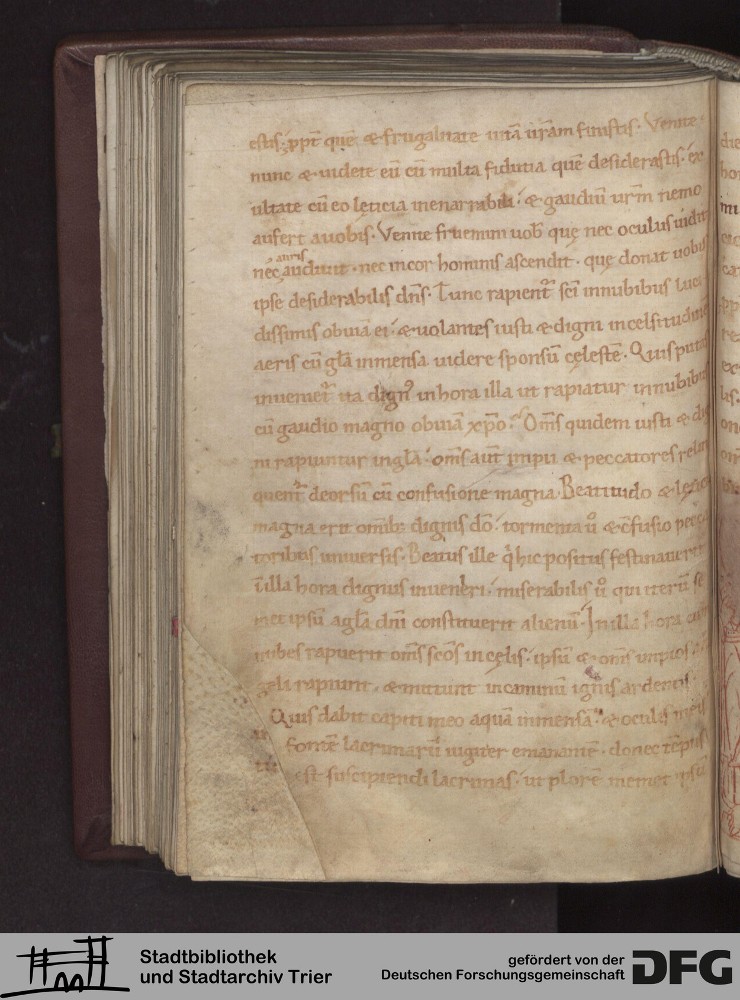 estis; ppt̄ quē & frugalitate uitā ur̄am finistis. Venite
nunc & uidete eū cū multa fidutia quē desiderastis. ex
ultate cū eo lęticia inenarrabili. & gaudiū urm̄ nemo
aufert a uobis. Venite fruemini uob̄ quę nec oculus uidit
nec auris audiuit. nec in cor hominis ascendit. quę donat uobis
ipse desiderabilis dn̄s. Tunc rapient̄ sc̄i in nubibus luci
dissimis obuiā ei. & uolantes iusti & digni in celsitudinē
aeris cū gl̄a inmensa uidere sponsū cęlestē. Quis putas
inueniet̄ ita dign᷒ in hora illa ut rapiatur in nubibus
cū gaudio magno obuiā xp̄o. Om̄s quidem iusti & dig
ni rapiuntur in gl̄a. om̄s aūt impii & peccatores relin
quent̄ deorsū cū confusione magna. Beatitudo & lęticia
magna erit omib; dignis dō. tormenta ū & c̄fusio pecca
toribus uniuersis. Beatus ille q̇ hic positus festinauerit
ī illa hora dignus inueniri. miserabilis ū qui iterū se
met ipsū a gl̄a dn̄i constituerit alienū. In illa hora cum
nubes rapuerit om̄s sc̄os in cęlis. ipsū & om̄s impios an
geli rapiunt. & mittunt in caminū ignis ardentis.
Quis dabit capiti meo aquā inmensā. & oculis meis
fontē lacrimarū iugiter emanantē. donec tēpus
est suscipiendi lacrimas. ut plorē memet ipsū
Stadtbibliothek
und Stadtarchiv Trier
gefördert von der
Deutschen Forschungsgemeinschaft
DFG